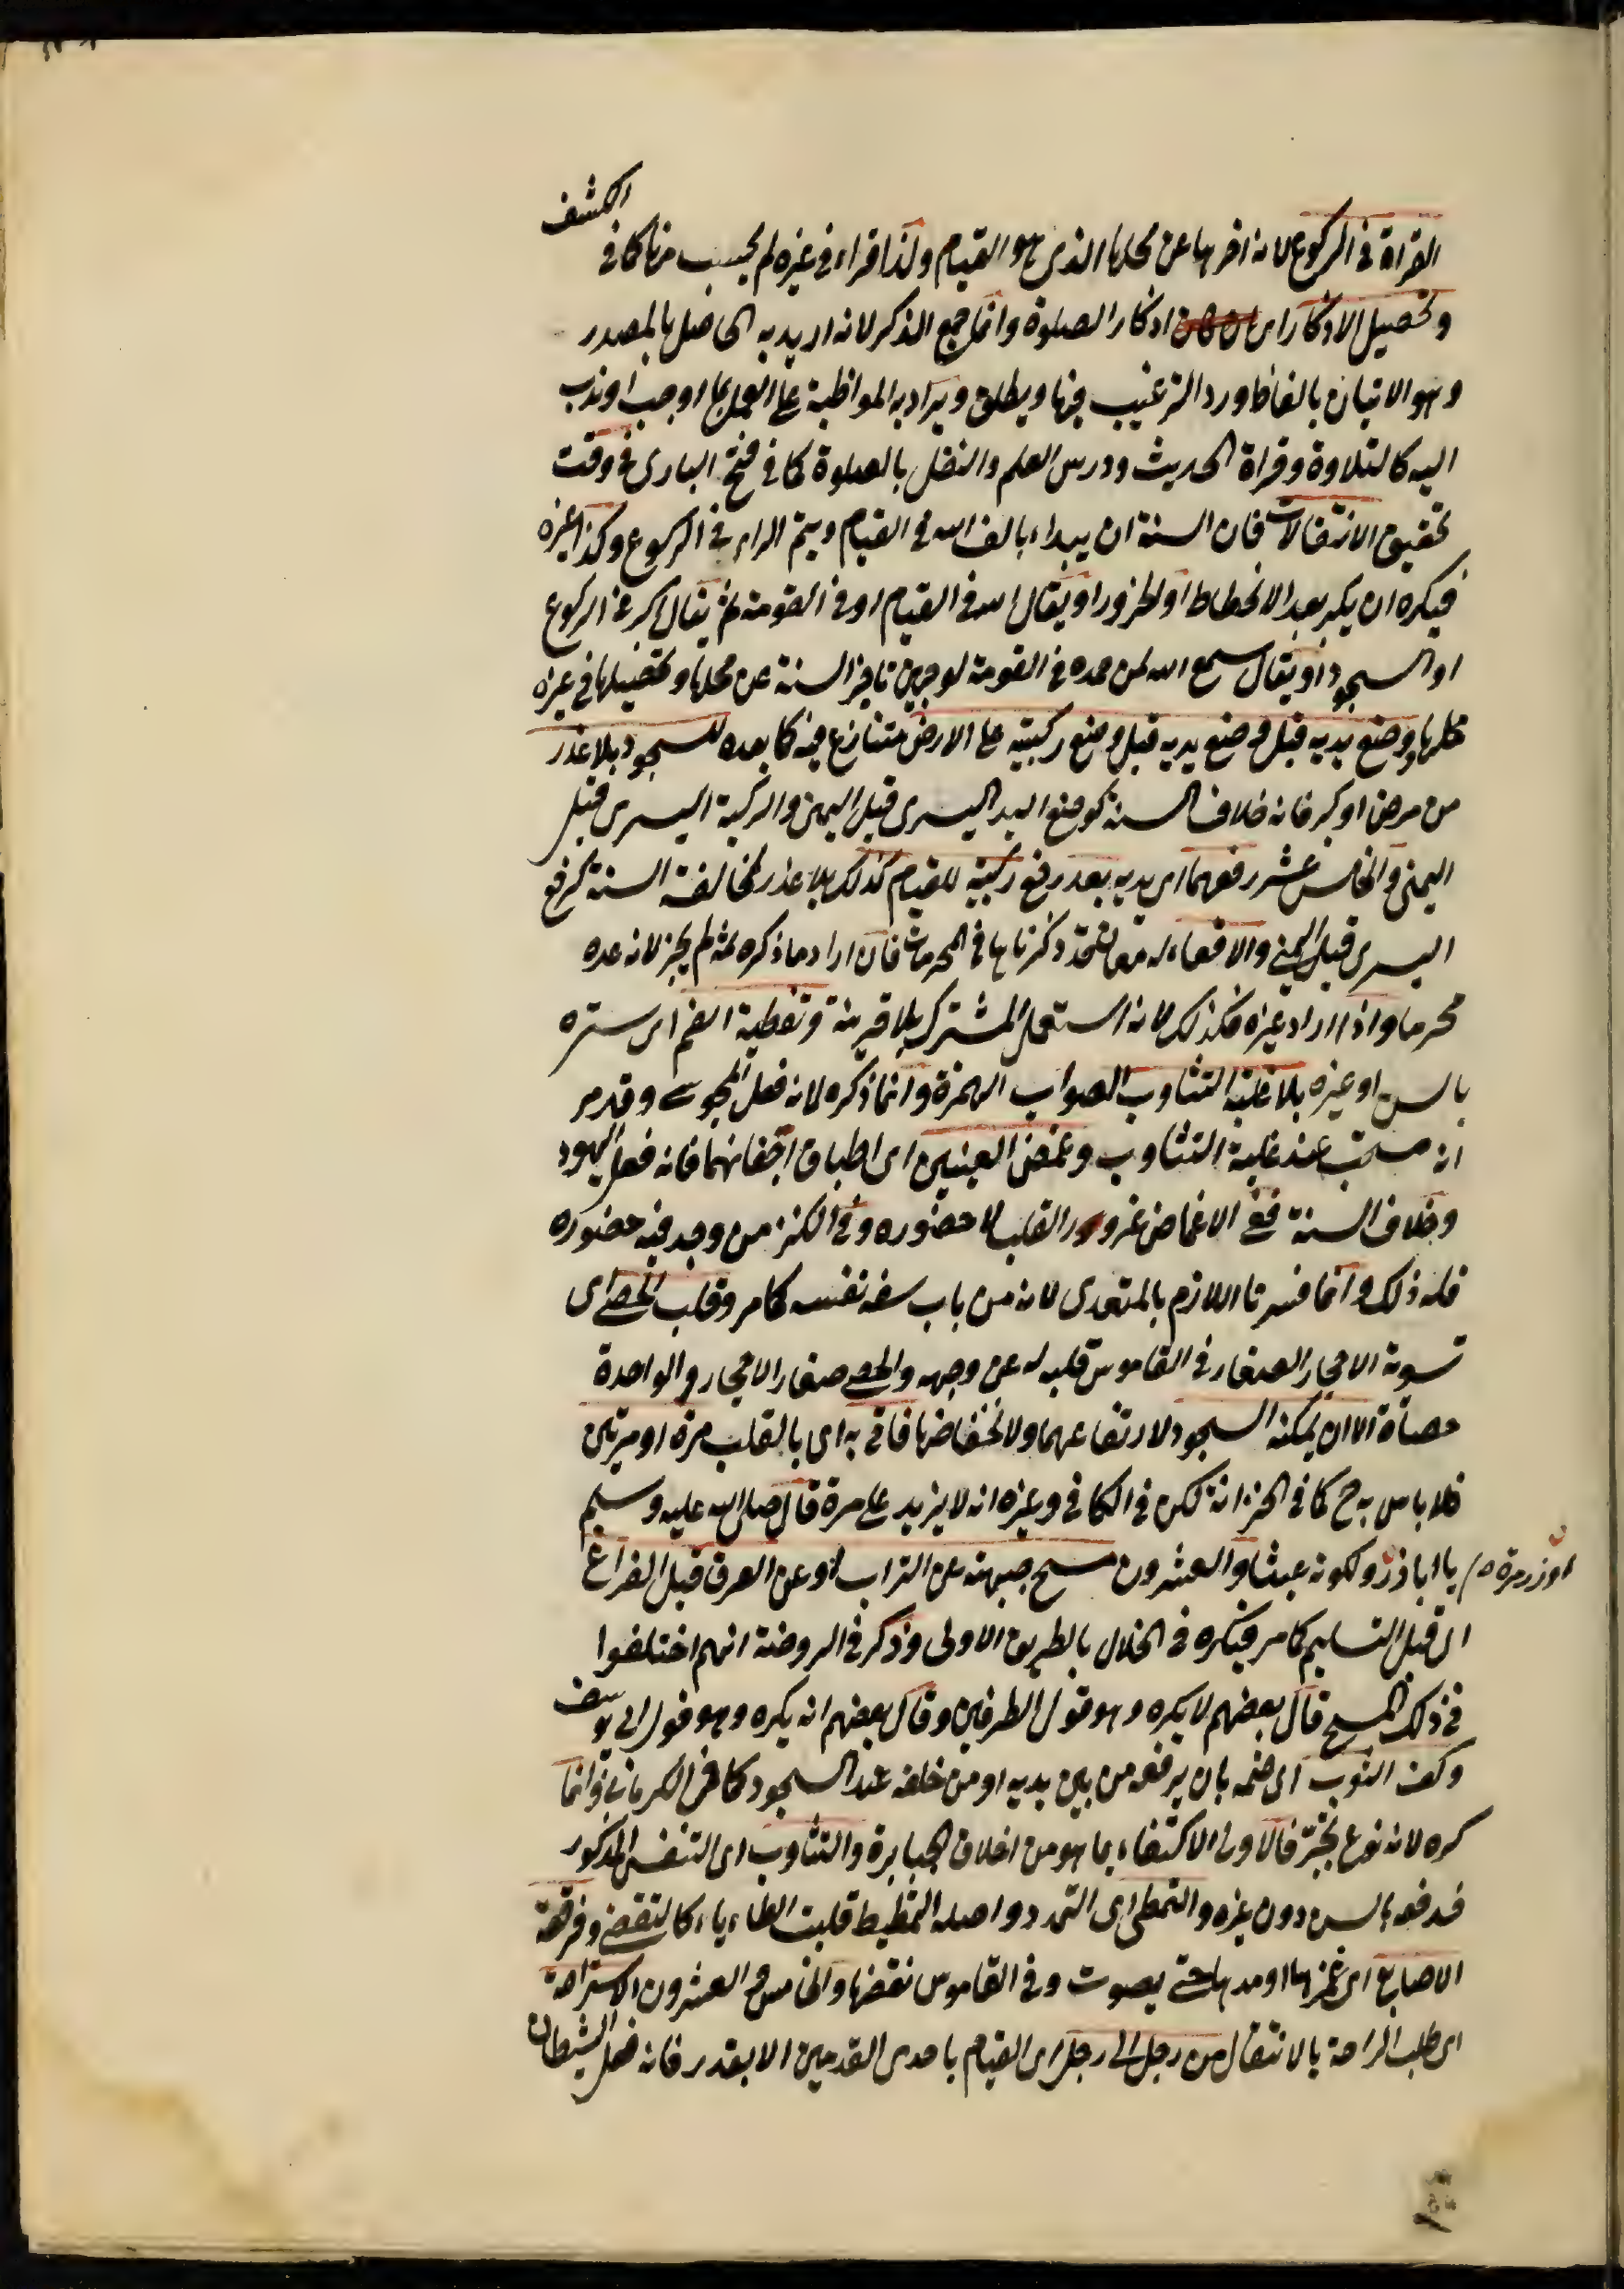 الكشف
القراة فى الركوع لانه اخرها عن محلها الذى هو القيام ولذا قراء فى غيره لم يحسب منها كما فى
وتحصيل الاذكار اى اذكار الصلوة وانما جمع الذكر لانه اريد به الحاصل بالمصدر
وهو الاتيان بالفاظ ورد الترغيب فيها ويطلق ويراد به المواظبة على العمل بما اوجب او ندب
اليه كالتلاوة وقراة الحديث ودرس العلم والنفل بالصلوة كما فى فتح البارى فى وقت
تحقيق الانتقالات فان السنة ان يبداء بالف الله فى القيام ويتم الراء فى الركوع وكذا غيره
فيكره ان يكبر بعد الانحطاط او الخرور او يقال الله فى القيام او فى القومة ثم يقال اكبر فى الركوع
او السجود او يقال سمع الله لمن حمده فى القومة لوجهين تاخير السنة عن محلها وتحصيلها فى غير
محلها ووضع يديه قبل وضع يديه قبل وضع ركبتيه على الارض متنازع فيه كما بعده للسجود بلا عذر
من مرض او كبر فانه خلاف السنة كوضع اليد اليسرى قبل اليمنى والركبة اليسرى قبل
اليمنى والخامس عشر رفعهما اى يديه بعد رفع ركبتيه للقيام كذلك بلا عذر لمخالفة السنة كرفع
اليسرى قبل اليمنى والاقعاء له معان ذكرناها فى المحرمات فان اراد ما ذكره ثمه لم يجز لانه عده
محرما واذا اراد غيره فكذلك لانه استعمل المشترك بلا قرينة وتغطية الفم اى ستره
باليد او غيره بلا غلبة التثاوب الصواب الهمزة وانما ذكره لانه فعل المجوسى وقد مر
انه مستحب عند غلبة التثاوب وغمض العينين اى اطباق اجفانهما فانه فعل اليهود
وخلاف السنة ففى الاغماض القلب لا حضوره وفى الكنز من وجد فيه حضوره
فله ذلك وانما فسرنا اللازم بالمتعدى لانه من باب سفه نفسه كما مر وقلب الحصى اى
تسوية الاحجار الصغار فى القاموس قلبه له عن وجهه والحصى صغار الاحجار والواحدة
حصاة الا ان يمكنه السجود لارتفاعهما ولانخفاضها فاتى به اى بالقلب مرة او مرتين
فلا باس به ح كما فى الخزانة لكن فى الكافى وغيره انه لا يزيد على مرة قال صلى الله عليه وسلم
يا ابا ذر ولكونه عبثا والعشرون مسح جبهته عن التراب او عن العرق قبل الفراغ
اى قبل التسليم كما مر فيكره فى الخلال بالطريق الاولى وذكر فى الروضة انهم اختلفوا
فى ذلك المسح قال بعضهم لا يكره وهو قول الطرفين وقال بعضهم انه يكره وهو قول ابى يوسف
وكف الثوب اى ضمه بان يرفعه من بين يديه او من خلفه عند السجود كما فى الكرمانى وانما
كره لانه نوع تجبر فالاولى الاكتفاء بما هو من اخلاق الجبابرة والتثاوب اى التنفس المذكور
فدفعه بالسن دون غيره والتمطى اى التمدد واصله التمطيط قلبت الطاء ياء كالتقضى وفرقعة
الاصابع اى غمزها او مدها حتى يصوت وفى القاموس نقضها والخامس والعشرون الاستراحة
اى طلب الراحة بالانتقال من رجل الى رجل اى القيام باحدى القدمين الا بقدر فانه فعل الشيطان